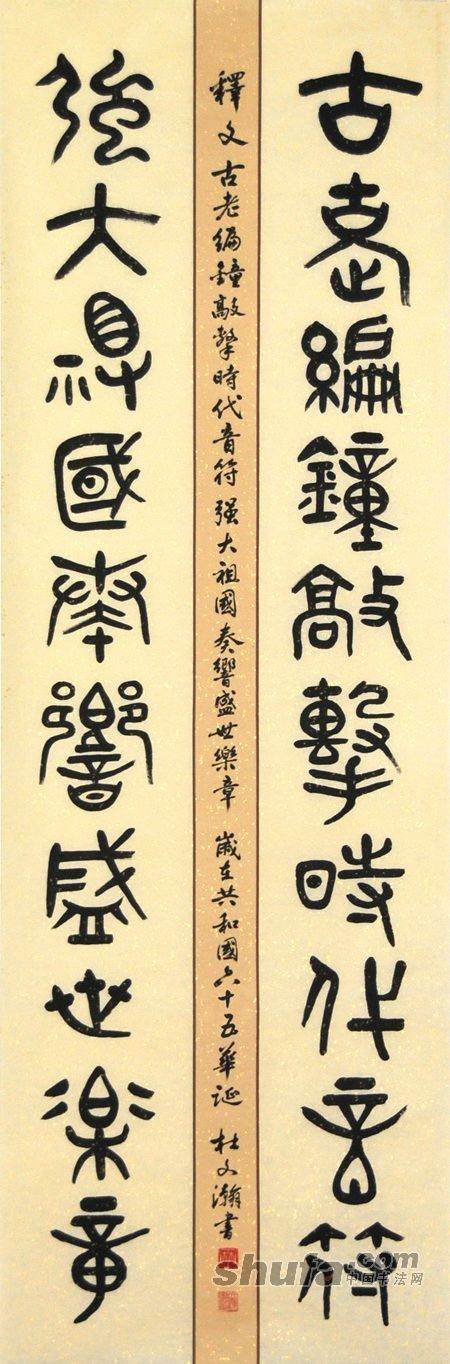 古老編鐘敲擊時代音符
釋文古老編鐘敲擊時代音符强大祖國奏響盛世樂章 歲在共和國六十五華誕 杜文瀚書
强大祖國奏響盛世樂章
shufa.com
中国书法网